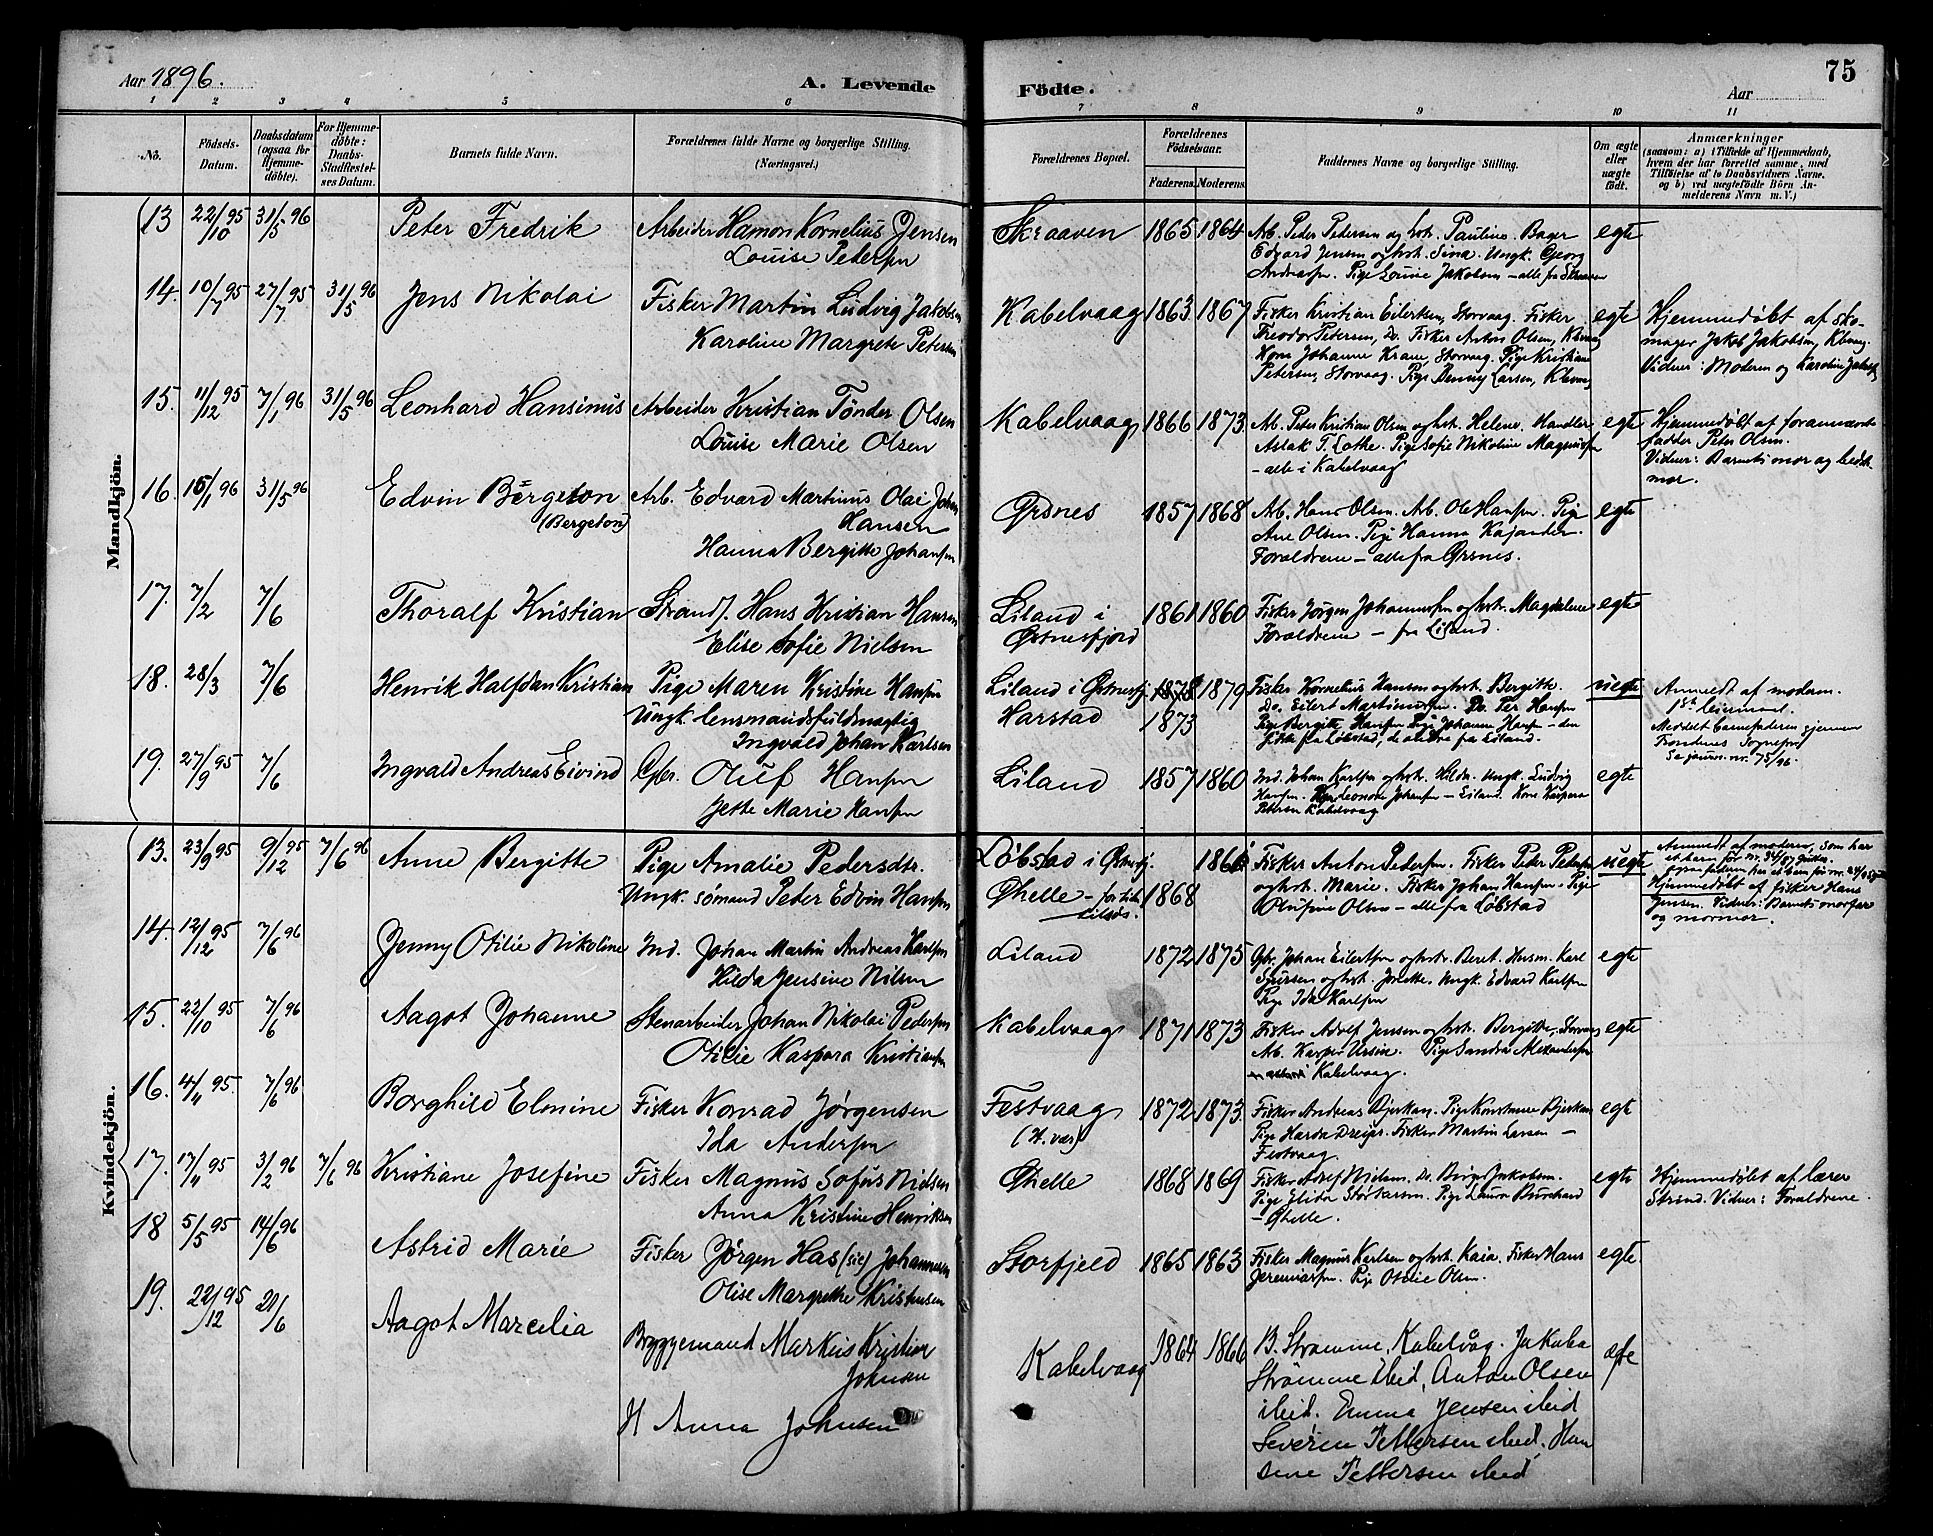 Aar 1896.
A. Levende
Födte.
Aar
75
1 2 3 4 5 6 7 8 9 10 11
No.
Födsels-Datum.
Daabsdatum (ogsaa for Hjemme-döbte).
For Hjemme-döbte: Daabs-Stadfæstelses Datum.
Barnets fulde Navn.
Forældrenes fulde Navne og borgerlige Stilling. (Næringsvei.)
Forældrenes Bopæl.
Forældrenes Födselsaar.
Faderens. Moderens.
Faddernes Navne og borgerlige Stilling.
Om ægte eller uægte födt.
Anmærkninger
(saasom: a) i Tilfælde af Hjemmedaab, hvem der har forrettet samme, med Tilföielse af to Daabsvidners Navne. og b) ved uægtefödte Börn Anmelderens Navn m. V.)
Mandkjön.
13 22/10 95 31/5 96 Peter Fredrik Arbeider Hamon Kornelius Jensen
Louise Petersen
Skraaven 1865 1864 Arb. Peder Petersen og hst. Pauline. Bager
Edvard Jensen og hst. Sina. Ungk. Georg
Andreasen. Pige Louise Jakobsen – alle fra Skraaven
egte
14. 10/7 95 27/7 95 31/5 96 Jens Nikolai Fisker Martin Ludvig Jakobsen
Karoline Margrete Petersen
Kabelvaag 1863 1867 Fisker Kristian Eilertsen, Storvaag. Fisker
Theodor Petersen, Do. Fisker Anton Olsen, Kbvaag
Kone Johanne Krane, Storvaag. Pige Kristiane
Petersen, Storvaag. Pige Benny Larsen, Kbvaag
egte
Hjemmedøbt af sko-
mager Jakob Jakobsen, Kbvaag.
Vidner: Moderen og Karoline Jakobs.
15. 11/12 95 7/1 96 31/5 96 Leonhard Hansinus Arbeider Kristian Tønder Olsen
Louise Marie Olsen
Kabelvaag 1866 1873 Arb. Peter Kristian Olsen og hst. Helene. Handler
Aslak T. Lothe. Pige Sofie Nikoline Magnusen
– alle i Kabelvaag
egte
Hjemmedøbt af forannævnte
fadder Peter Olsen.
Vidner: Barnets mor og bedste-
mor.
16. 15/1 96 31/5 96 Edvin Bergeton
(Bergeton)
Arb. Edvard Martinus Olai Johan
Hansen
Hanna Bergitte Johansen
Ørsnes 1857 1868 Arb. Hans Olsen. Arb. Ole Hansen. Pige
Ane Olsen. Pige Hanna Kajander.
Forældrene – alle fra Ørsnes.
egte
17. 7/2 7/6 Thoralf Kristian Strands. Hans Kristian Hansen
Elise Sofie Nielsen
Liland i
Østnesfjord
1861 1860 Fisker Jørgen Johannessen og hst. Magdalene
Forældrene – fra Liland.
egte
18. 28/3 7/6 Henrik Halfdan Kristian Pige Maren Kristine Hansen
Ungk. lensmandsfuldmægtig
Ingvald Johan Karlsen
Liland i Østnesfj.
Harstad
1878 1879
1873
Fisker Kornelius Hansen og hst. Bergitte.
Do. Eilert Martinussen. Do. Per Hansen
Pige Bergitte Hansen Pige Johanne Hansen – den
sidste fra Løbstad, de andre fra Liland.
uegte
Anmeldt af moderen.
1ste leiermaal.
Meddelt barnefaderen gjennem
Trondenes Sognepr.
Se journ. nr. 75/96.
19. 27/9 95 7/6 Ingvald Andreas Eivind Gbr. Oluf Hansen
Jette Marie Hansen
Liland 1857 1860 Ind. Johan Karlsen og hst. Hilda. Ungk. Ludvig
Hansen. Leonore Johansen – Liland. Kone Kaspara
Petersen Kabelvaag
egte
Kvindekjön.
13. 23/9 95 9/12 95 7/6 96 Anne Bergitte Pige Amalie Pedersdtr.
Ungk. sømand Peder Edvin Hansen
Løbstad i Østnesfj.
Ghelle – før
1866
1868
Fisker Anton Pedersen. Fisker Peter Pedersen
og hst. Marie. Fisker Johan Hansen. Pige
Olufine Olsen – alle fra Løbstad
uegte
Anmeldt af moderen, som har
et barn før
Hjemmedøbt af fisker Hans
Jensen. Vidner: Barnets morfar
og mormor.
14. 12/12 95 7/6 96 Jenny Otilie Nikoline Ind. Johan Martin Andreas Karlsen
Hilda Jensine Nilsen
Liland 1872 1875 Gbr. Johan Eilertsen og hst. Beret. Husm. Karl
Sjursen og hst. Jonette. Ungk. Edvard Karlsen
Pige Ida Karlsen
egte
15. 22/10 95 7/6 96 Aagot Johanne Stenarbeider Johan Nikolai Pedersen
Otilie Kaspara Kristiansen
Kabelvaag 1871 1873 Fisker Adolf Jensen og hst. Bergitte, Storvaag
Arb. Kasper Ursin. Pige Sandra Alexandersen
Kabelvaag.
egte
16. 4/11 95 7/6 96 Borghild Elmine Fisker Konrad Jørgensen
Ida Andersen
Festvaag
(H. vær)
1872 1873. Fisker Andreas Bjerkan. Pige Konstanse Bjerkan
Pige Harda Dreijer. Fisker Martin Larsen –
Festvaag.
egte
17. 17/11 95 3/2 96 7/6 96 Kristiane Josefine Fisker Magnus Sofus Nielsen
Anna Kristine Henriksen
Ghelle 1868 1869 Fisker Adolf Nielsen. Do. Birger Jakobsen.
Pige Elida Storkarsen. Pige Laura Burchard
– Ghelle.
egte
Hjemmedøbt af lærer
Strand. Vidner: Forældrene.
18 5/5 95 14/6 96 Astrid Marie Fisker Jørgen Has (sic) Johannesen
Olise Margrethe Kristensen
Storfjeld 1865 1863 Fisker Magnus Karlsen og hst. Kaia. Fisker Hans
Jeremiassen. Pige Otelie Olsen.
egte.
19. 22/12 95 21/6 Aagot Marcelia Bryggemand Markus Kristian
Johnsen
H Anna Johnsen
Kabelvaag 1864 1866 B. Strømme, Kabelvåg. Jakoba
Strømme ibid, Anton Olsen
ibid. Emma Jensen ibid
Severin Pettersen ibid. Han
sine Pettersen ibid
ægte